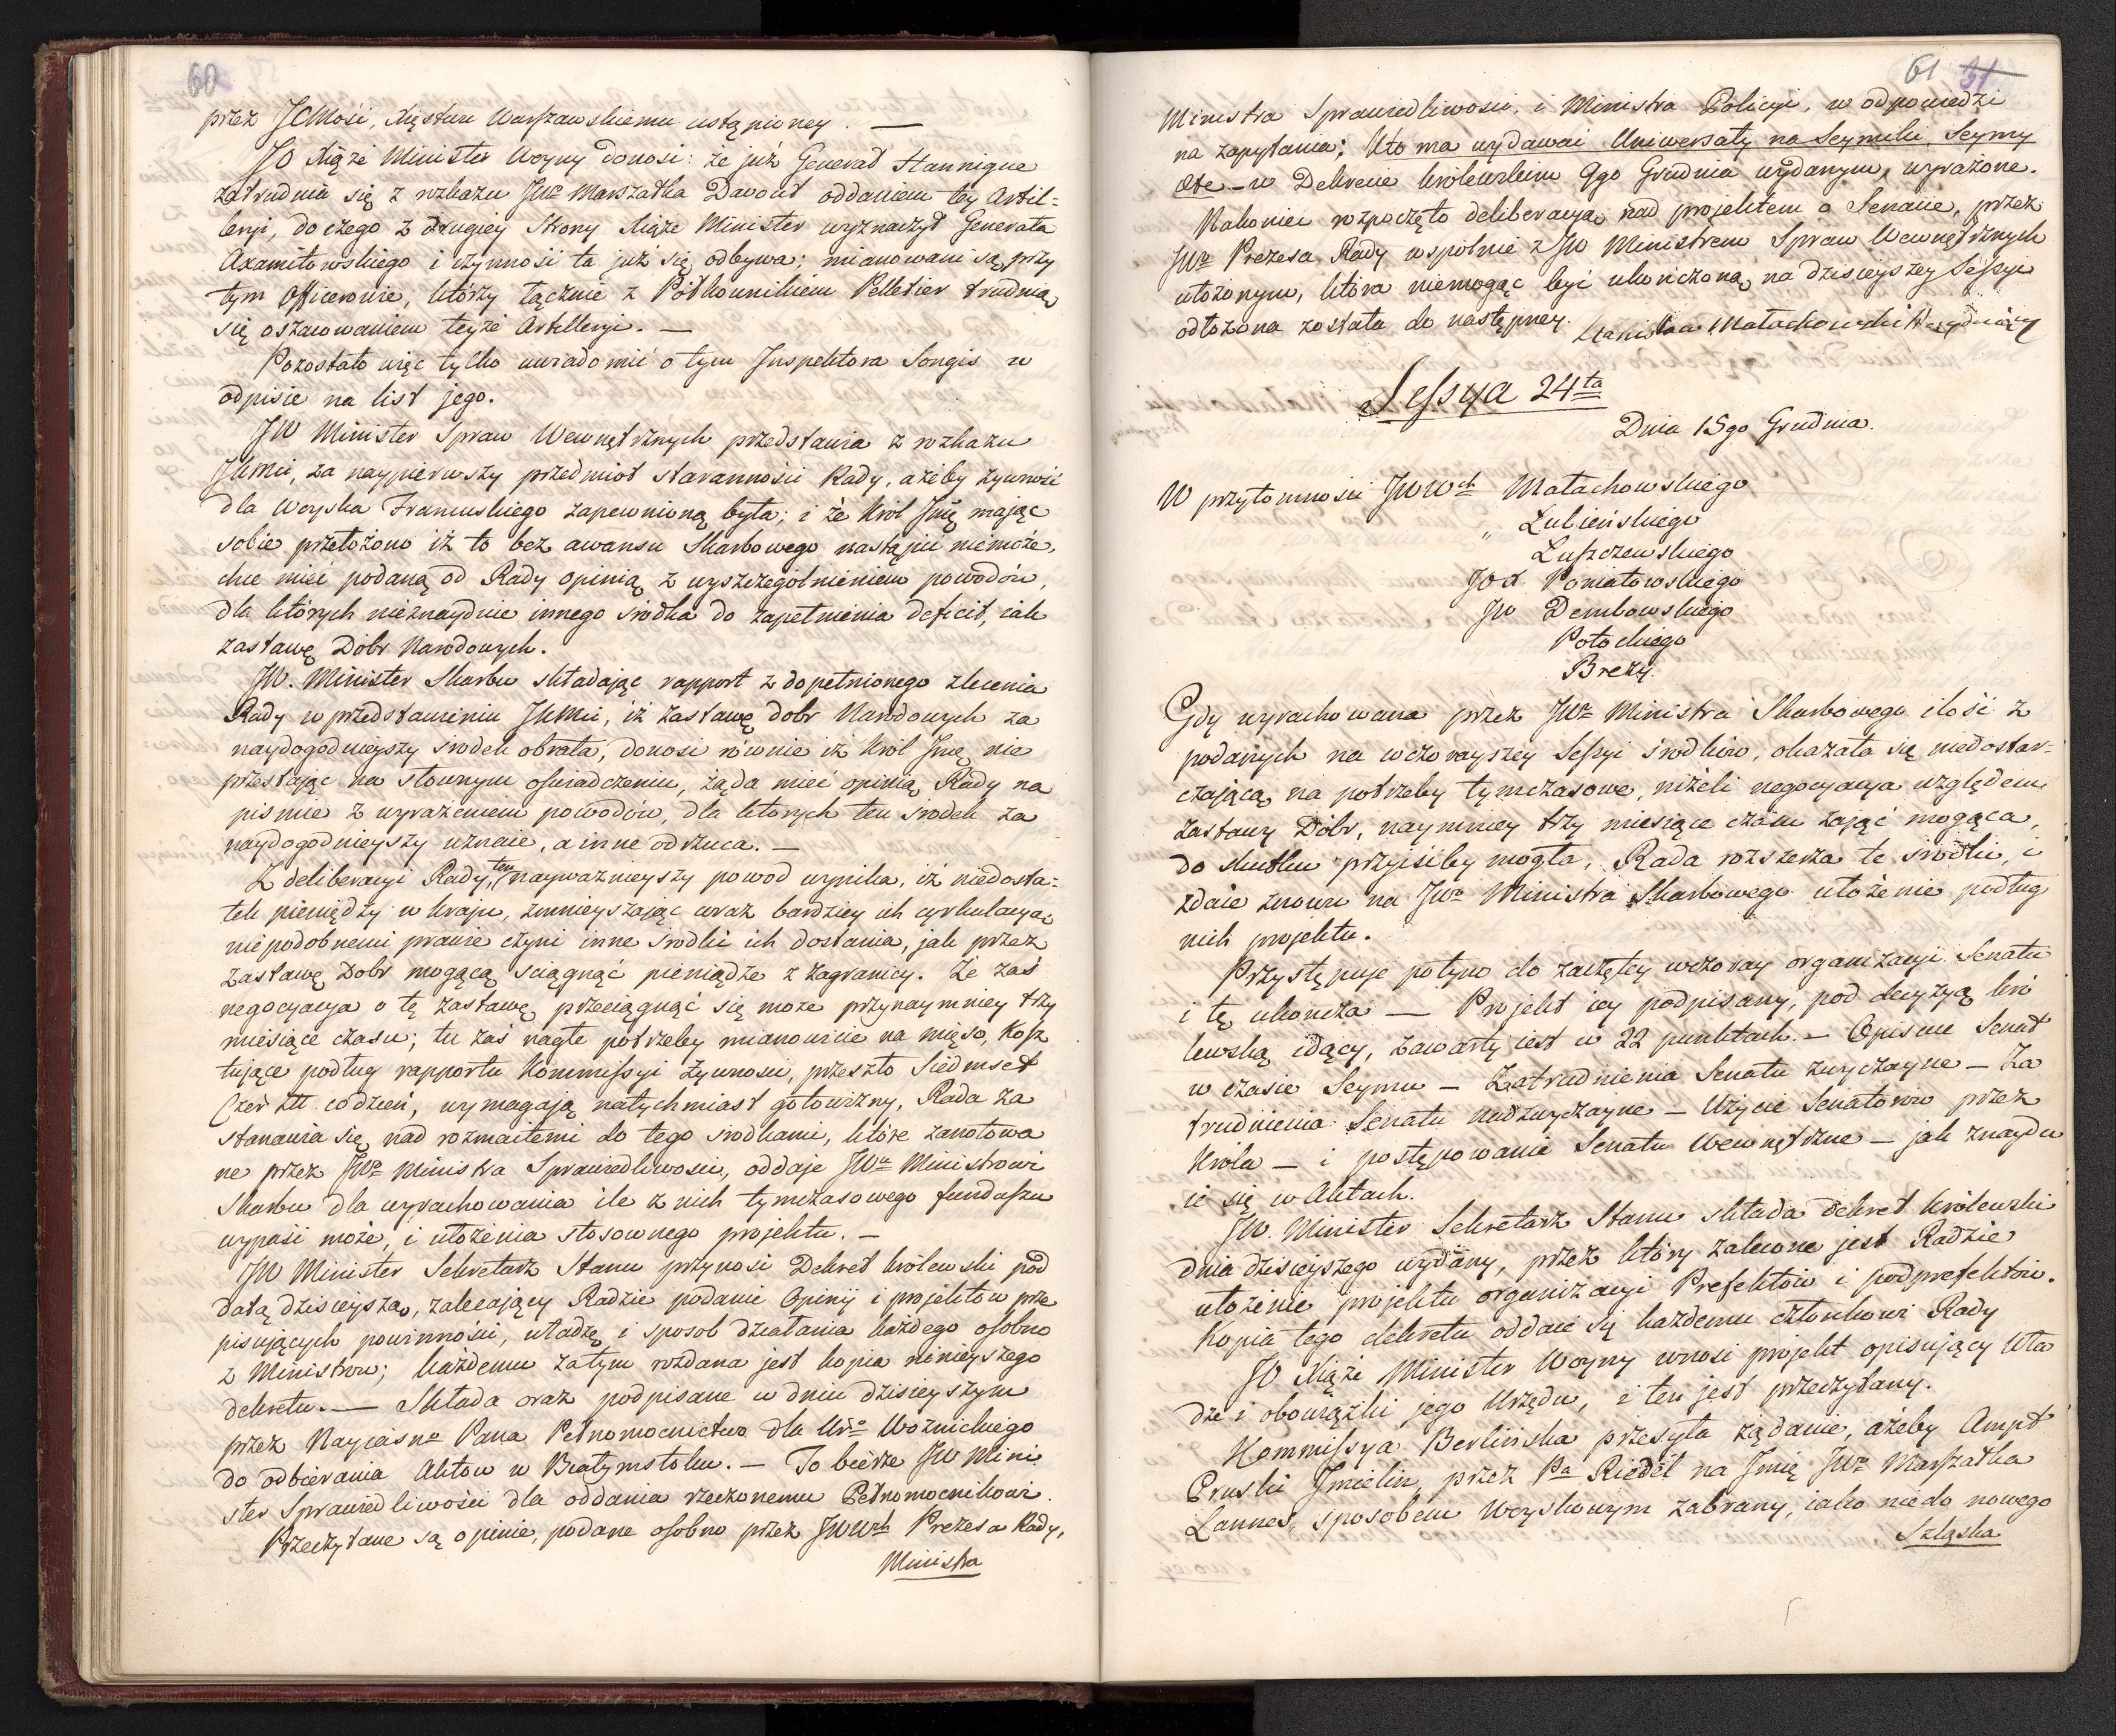 60
przez JCMości, Xięstwu Warszawskiemu ustąpioney. —
JO Xiąże Minister Woyny donosi: że już Generał Hannique
zatrudnia się z rozkazu JWo Marszałka Davout oddaniem tey Artil=
leryi, do czego z drugiey strony Xiąże Minister wyznaczył Generała
Axamitowskiego i czynność ta już się odbywa; mianowani są przy
tym Officerowie, którzy łącznie z Półkownikiem Pelletier trudnią
się oszacowaniem teyże Artilleryi. —
Pozostało więc tylko uwiadomić o tym Inspektora Songis w
odpisie na list jego.
JW Minister Spraw Wewnętrznych przedstawia z rozkazu
JKMci, za naypierwszy przedmiot staranności Rady, ażeby żywność
dla Woyska Francuskiego zapewnioną była; i że Król Jmć mając
sobie przełożono iż to bez awansu Skarbowego nastąpić niemoże,
chce mieć podaną od Rady opinią z wyszczególnieniem powodów,
dla których nieznayduie innego środka do zapełnienia deficit, iak
zastawę Dóbr Narodowych.
JW. Minister Skarbu składając rapport z dopełnionego zlecenia
Rady w przedstawieniu JKMci, iż zastawę dobr Narodowych za
naydogodnieyszy środek obrała, donosi równie iż Król Jmć nie
przestając na słownym oświadczeniu, żąda mieć opinią Rady na
piśmie z wyrażeniem powodów, dla których ten środek za
naydogodnieyszy uznaie, a inne odrzuca. —
Z deliberacyi Rady, ten nayważnieyszy powod wynika, iż niedosta=
tek pieniędzy w kraju, zmnieyszając coraz bardziey ich cyrkulacyą
niepodobnemi prawie czyni inne srodki ich dostania, jak przez
zastawę Dobr mogącą sciągnąć pieniądze z zagranicy. Że zaś
negocyacya o tę zastawę przeciągnąć się może przynaymniey trzy
miesiące czasu; tu zaś nagłe potrzeby mianowicie na mięso, Kosz
tujące podług rapportu Kommissyi Żywności, przeszło Siedmset
Czer Ztt codzień, wymagają natychmiast gotowizny, Rada za
stanawia się nad rozmaitemi do tego srodkami, które zanotowa
ne przez JWo Ministra Sprawiedliwości, oddaje JWu Ministrowi
Skarbu dla wyrachowania ile z nich tymczasowego funduszu
wypaść może, i ułożenia stosownego projektu. —
JW Minister Sekretarz Stanu przynosi Dekret królewski pod
datą dzisieyszą, zalecający Radzie podanie Opinij i projektów prze
pisujących powinności, władzę i sposob działania każdego osobno
z Ministrów; każdemu zatym rozdana jest kopia ninieyszego
dekretu. — Składa oraz podpisane w dniu dzisieyszym
przez Nayiaśno Pana Pełnomocnictwo dla Uro Woźnickiego
do odbierania Aktow w Białymstoku. — To bierze JW Mini
ster Sprawiedliwości dla oddania rzeczonemu Pełnomocnikowi.
Przeczytane są opinie, podane osobno przez JWWch Prezesa Rady,
Ministra
61 31
Ministra Sprawiedliwości, i Ministra Policyi, w odpowiedzi
na zapytania; Kto ma wydawać Uniwersały na Seymiki, Seymy
etc — w Dekrecie królewskim 9go Grudnia wydanym, wyrażone.
Nakoniec rozpoczęto deliberacyą nad projektem o Senacie, przez
JWo Prezesa Rady wspólnie z JW Ministrem Spraw Wewnętrznych
ułożonym, która niemogąc być ukończoną na dzisieyszey Sessyi
odłożona została do następney. Stanisław Małachowski Prezyduiący
Sessya 24ta
Dnia 15go Grudnia.
W przytomności JWWch Małachowskiego
„ Lubieńskiego
Łuszczewskiego
JOX. Poniatowskiego
JW Dembowskiego
Potockiego
Brezy.
Gdy wyrachowana przez JWo Ministra Skarbowego ilość z
podanych na wczorayszey Sessyi środków, okazała się niedostar=
czającą na potrzeby tymczasowe, niżeli negocyacya względem
zastawy Dóbr, naymniey trzy miesiące czasu zająć mogąca,
do skutku przyiśćby mogła, Rada rozszerza te środki, i
zdaie znowu na JWo Ministra Skarbowego ułożenie podług
nich projektu.
Przystępuje potym do zaczętey wczoray organizacyi Senatu
i tę ukończa — Projekt iey podpisany, pod decyzyą kró
lewską idący, zawarty iest w 22 punktach. — Opisuie Senat
w czasie Seymu — Zatrudnienia Senatu zwyczayne — Za
trudnienia Senatu nadzwyczayne — Użycie Senatorów przez
Króla — i postępowanie Senatu Wewnętrzne — jak znaydu
ie się w Aktach.
JW. Minister Sekretarz Stanu składa dekret królewski
dnia dzisieyszego wydany, przez który zalecone jest Radzie
ułożenie projektu organizacyi Prefektów i podprefektów.
Kopia tego dekretu oddaie się każdemu członkowi Rady
JO Xiąże Minister Woyny wnosi projekt opisujący Wła
dze i obowiązki jego Urzędu, i ten jest przeczytany.
Kommissya Berlińska przesyła żądanie, ażeby Ampt
Pruski Imielin, przez Pa Riedel na Imię JWo Marszałka
Lannes, sposobem Woyskowym zabrany, iako nie do nowego
Szląska